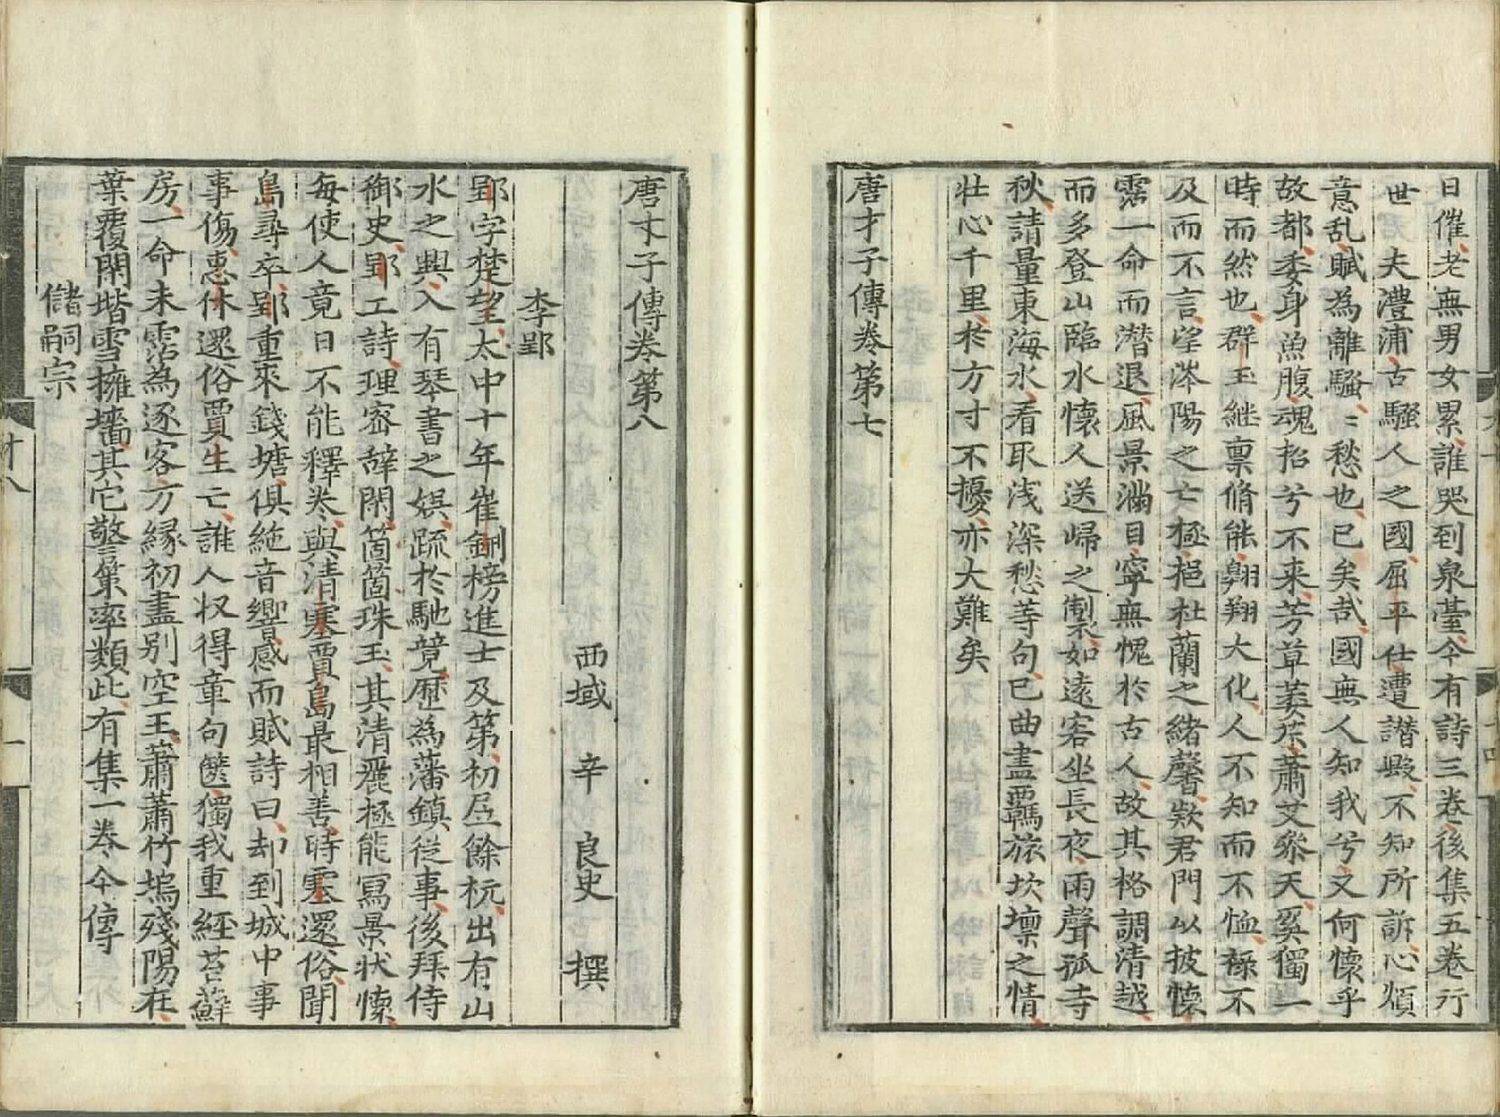 日催老無男女累誰哭到泉臺今有詩三卷後集五卷行
世 夫澧浦古騷人之國屈平仕遭譖毀不知所訴心煩
意乱賦為離騷〻愁也已矣㢤國無人知我兮又何懷乎
故都委身魚腹魂招兮不来芳草萎尔蕭艾參天奚獨一
時而然也群玉継禀脩能翱翔大化人不知而不恤禄不
及而不言望涔陽之亡極挹杜蘭之緒馨欵君門以披懐
霑一命而潜退風景滿目寧無愧於古人故其格調清越
而多登山臨水懷人送歸之製如遠客坐長夜雨聲孤寺
秋請量東海水看取浅深愁等句已曲盡羈旅坎壈之情
壮心千里於方寸不擾亦大難矣
唐才子傳卷第七
唐才子傳卷第八
西域 辛 良史 撰
李郢
郢字楚望太中十年崔鉶榜進士及第初居餘杭出有山
水之興入有琴書之娯䟽於馳競歴為藩鎮従事後拜侍
御史郢工詩理密辞閑箇箇珠玉其清麗極能寫景状懐
每使人竟日不能釋卷與清塞賈島最相善時塞還俗聞
島尋卒郢重来錢塘俱絶音響感而賦詩曰却到城中事
事傷惠休還俗賈生亡誰人収得章句篋獨我重經苔蘚
房一命未霑為逐客万縁初盡别空王蕭蕭竹塢殘陽在
葉覆閑堦雪擁墻其它警策率類此有集一卷今傳
儲嗣宗
才八
一